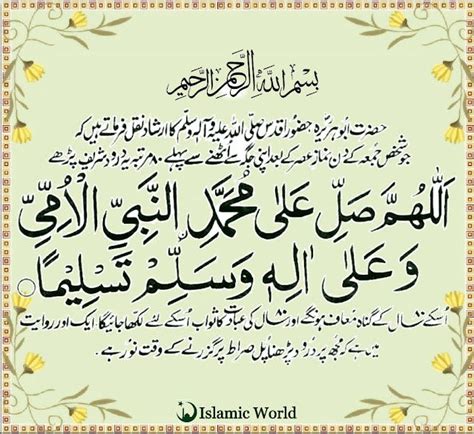 بِسْمِ اللهِ الرَّحْمٰنِ الرَّحِيْمِ
حضرت ابوہریرہ حضور اقدس صلی اللہ علیہ وآلہ وسلم کا ارشاد نقل فرماتے ہیں کہ
جو شخص جمعہ کے دن نماز عصر کے بعد اپنی جگہ سے اٹھنے سے پہلے ۸۰ مرتبہ یہ درود شریف پڑھے
اَللّٰهُمَّ صَلِّ عَلٰى مُحَمَّدِ النَّبِيِّ الْاُمِّيِّ
وَعَلٰى اٰلِهٖ وَسَلِّمْ تَسْلِيْمًا
اسکے ۸۰ سال کے گناہ معاف ہونگے اور ۸۰ سال کی عبادت کا ثواب اسکے لئے لکھا جائیگا۔ ایک اور روایت
میں ہے کہ مجھ پر درود پڑھنا پل صراط پر گزرنے کے وقت نور ہے۔
Islamic World